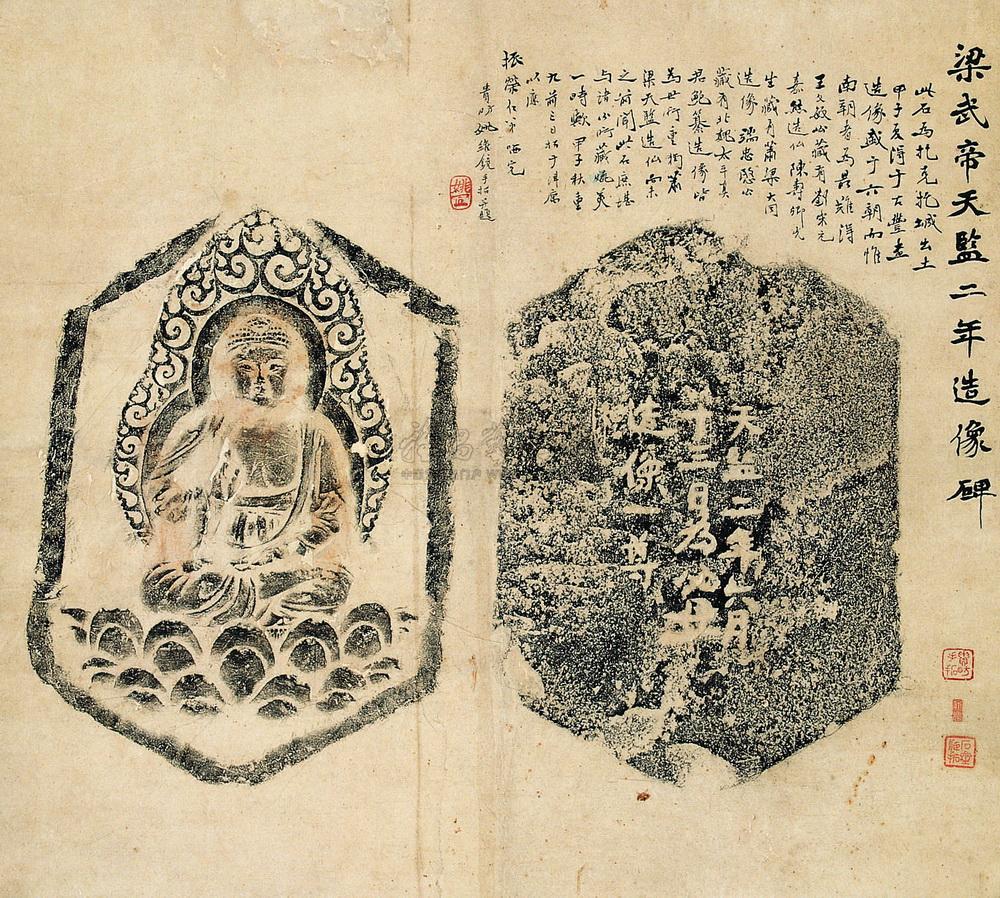 梁武帝天監二年造像碑
此石為扎克扎城出土
甲子夏得于大豐孟
造像盛于六朝而惟
南朝者為最難得
王文敏公藏有劉宋元
嘉熊造仙陳壽卿先
生藏有蕭梁大同
造像端忠愍公
藏有北魏太平真
君鮑纂造像皆
為世所重獨蕭
梁天監造仙尚未
之前聞此石庶堪
与諸公所藏媲美
一時歟甲子秋重
九前三日拓于津
以應
振榮仁
貴昉姚鏡手拓并題
天監二年六月
十二日為父母
造像一尊
貴昉手拓